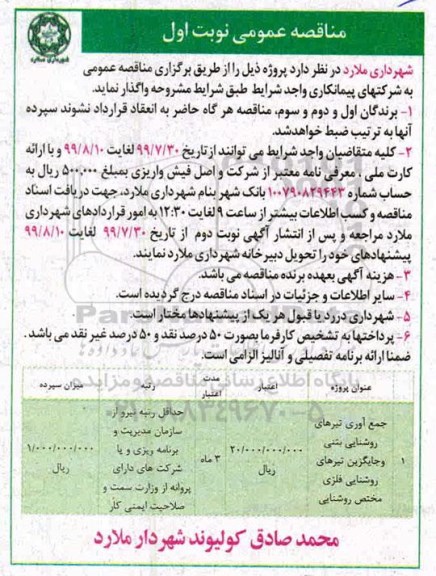 مناقصه عمومی نوبت اول
شهرداری ملارد
شهرداری ملارد در نظر دارد پروژه ذیل را از طریق برگزاری مناقصه عمومی
به شرکتهای پیمانکاری واجد شرایط طبق شرایط مشروحه واگذار نماید.
۱- برندگان اول و دوم و سوم، مناقصه هر گاه حاضر به انعقاد قرارداد نشوند سپرده
آنها به ترتیب ضبط خواهدشد.
۲- کلیه متقاضیان واجد شرایط می توانند از تاریخ ۹۹/۷/۳۰ لغایت ۹۹/۸/۱۰ و با ارائه
کارت ملی ، معرفی نامه معتبر از شرکت و اصل فیش واریزی بمبلغ ۵۰۰،۰۰۰ ریال به
حساب شماره ۱۰۰۷۹۰۸۲۹۴۴۳ بانک شهر بنام شهرداری ملارد، جهت دریافت اسناد
مناقصه و کسب اطلاعات بیشتر از ساعت ۹ لغایت ۱۲:۳۰ به امور قراردادهای شهرداری
ملارد مراجعه و پس از انتشار آگهی نوبت دوم از تاریخ ۹۹/۷/۳۰ لغایت ۹۹/۸/۱۰
پیشنهادهای خود را تحویل دبیرخانه شهرداری ملارد نمایند.
۳- هزینه آگهی بعهده برنده مناقصه می باشد.
۴- سایر اطلاعات و جزئیات در اسناد مناقصه درج گردیده است.
۵- شهرداری در رد یا قبول هر یک از پیشنهادها مختار است.
۶- پرداختها به تشخیص کارفرما بصورت ۵۰ درصد نقد و ۵۰ درصد غیر نقد می باشد .
ضمنا ارائه برنامه تفصیلی و آنالیز الزامی است.
عنوان پروژه اعتبار مدت اعتبار رتبه میزان سپرده
۱ جمع آوری تیرهای روشنایی بتنی وجایگزین تیرهای روشنایی فلزی مختص روشنایی
۲۰/۰۰۰/۰۰۰/۰۰۰ ریال
۳ ماه
حداقل رتبه نیرو از سازمان مدیریت و برنامه ریزی و یا شرکت های دارای پروانه از وزارت سمت و صلاحیت ایمنی کار
۱/۰۰۰/۰۰۰/۰۰۰ ریال
محمد صادق کولیوند شهردار ملارد
پایگاه اطلاع رسانی مناقصه و مزایده
۰۲۱-۸۸۳۴۹۶۷۰-۵